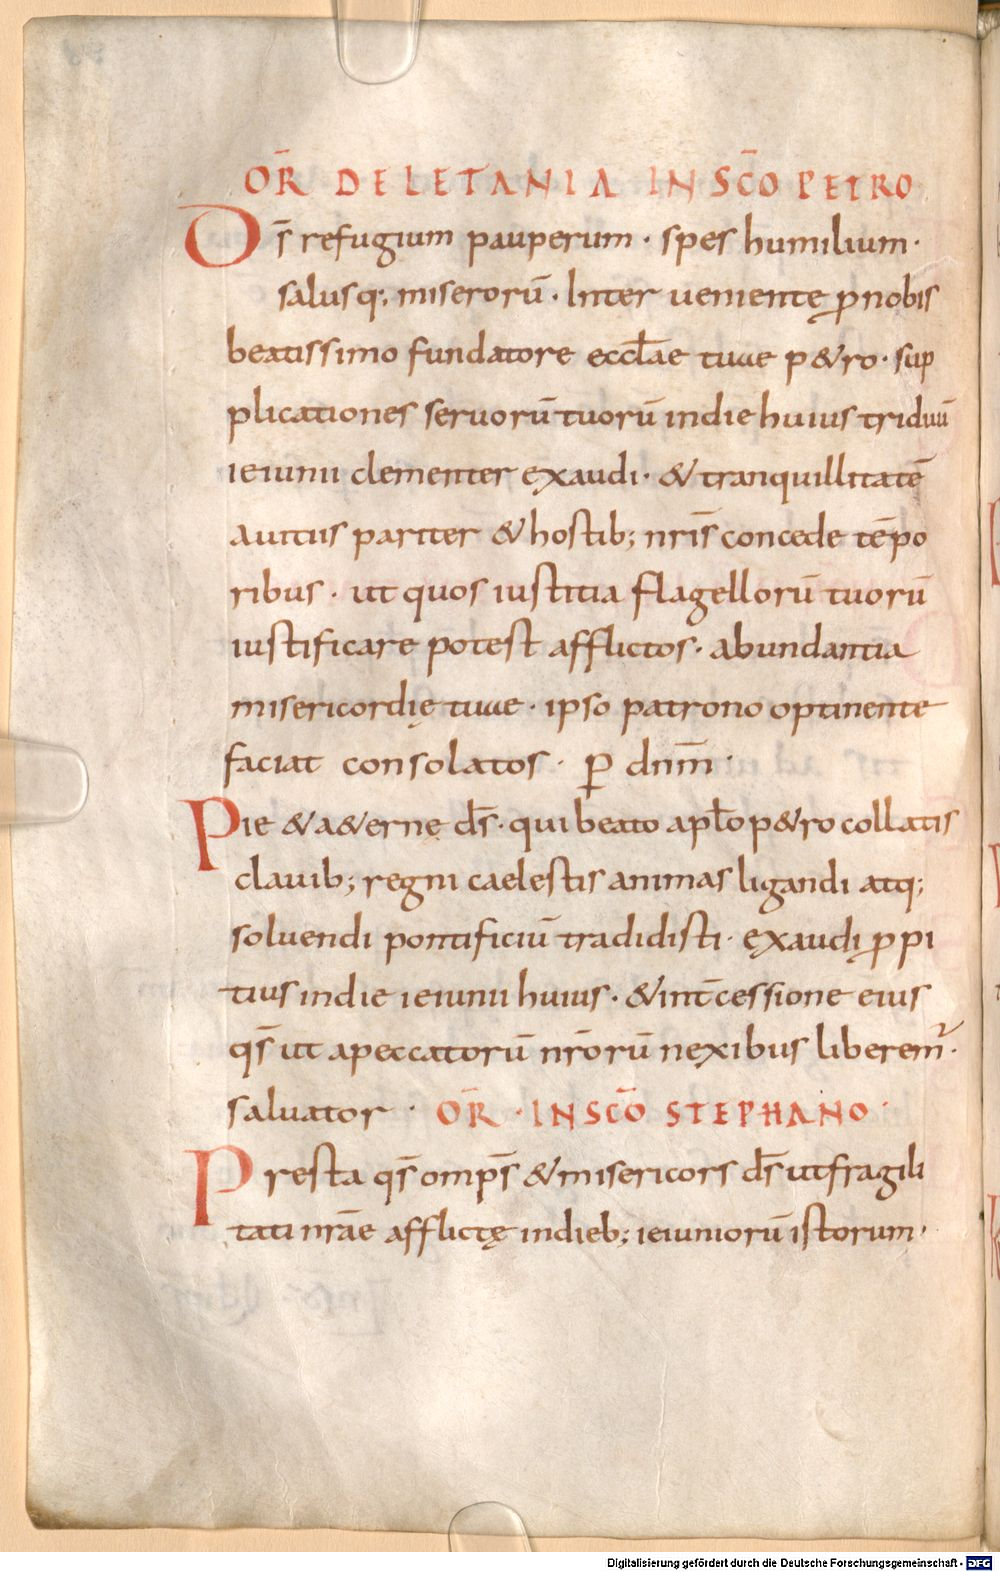 OR̄ DE LETANIA IN SC̄O PETRO
Ds̄ refugium pauperum · spes humilium ·
salusq; miserorū · Interueniente ꝓnobis
beatissimo fundatore eccl̄ae tuae p&ro · sup
plicationes seruorū tuorū indie huius triduū
ieiunii clementer exaudi · & tranquillitatē
auitus pariter & hostib; nris̄ concede tēpo
ribus · ut quos iustitia flagellorū tuorū
iustificare potest afflictos · abundantia
misericordię tuae · ipso patrono optinente
faciat consolatos · ꝑ dnm̄ ·
Pie & a&ernę ds̄ · qui beato apl̄o p&ro collatis
clauib; regni caelestis animas ligandi atq;
soluendi pontificiū tradidisti · exaudi ꝓpi
tius indie ieiunii huius · & int̄cessione eius
qs̄ ut apeccatorū nr̄orū nexibus liberem̄ ·
saluator · OR̄ · IN SC̄O STEPHANO ·
Presta qs̄ omps̄ & misericors ds̄ ut fragili
tati nrāe afflictę indieb; ieiuniorū istorum ·
Digitalisierung gefördert durch die Deutsche Forschungsgemeinschaft - DFG